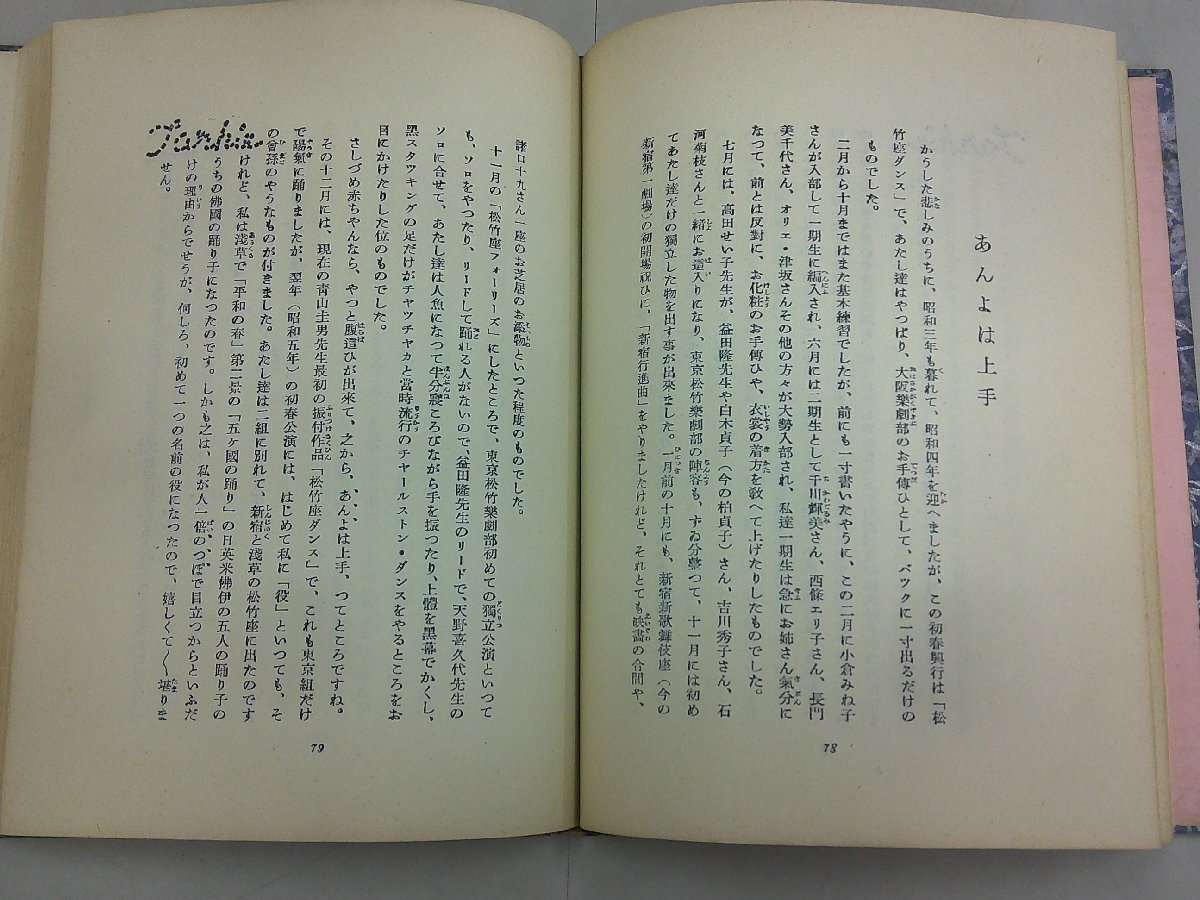 あんよは上手
かうした悲しみのうちに、昭和三年も暮れて、昭和四年を迎へましたが、この初春興行は「松
竹座ダンス」で、あたし達はやつぱり、大阪樂劇部のお手傳ひとして、バツクに一寸出るだけの
ものでした。
二月から十月まではまた基本練習でしたが、前にも一寸書いたやうに、この二月に小倉みね子
さんが入部して一期生に編入され、六月には二期生として千川輝美さん、西條エリ子さん、長門
美千代さん、オリエ・津坂さんその他の方々が大勢入部され、私達一期生は急にお姉さん氣分に
なつて、前とは反對に、お化粧のお手傳ひや、衣裳の着方を敎へて上げたりしたものでした。
七月には、高田せい子先生が、益田隆先生や白木貞子(今の柏貞子)さん、吉川秀子さん、石
河菊枝さんと一緖にお這入りになり、東京松竹樂劇部の陣容も、ずゐ分整つて、十一月には初め
てあたし達だけの獨立した物を出す事が出來ました。一月前の十月にも、新宿新歌舞伎座(今の
新宿第一劇場)の初開場祝ひに、「新宿行進曲」をやりましたけれど、それとても映畫の合間や、
78
諸口十九さん一座のお芝居のお添物といつた程度のものでした。
十一月の「松竹座フォーリーズ」にしたところで、東京松竹樂劇部初めての獨立公演といつて
も、ソロをやつたり、リードして踊れる人がないので、益田隆先生のリードで、天野喜久代先生の
ソロに合せて、あたし達は人魚になつて半分寢ころびながら手を振つたり、上體を黑幕でかくし、
黑スタツキングの足だけがチヤツチヤカと當時流行のチャールストン・ダンスをやるところをお
目にかけたりした位のものでした。
さしづめ赤ちやんなら、やつと腹這ひが出來て、之から、あんよは上手、つてところですね。
その十二月には、現在の靑山圭男先生最初の振付作品「松竹座ダンス」で、これも東京組だけ
で陽氣に踊りましたが、翌年(昭和五年)の初春公演には、はじめて私に「役」といつても、そ
の曾孫のやうなものが付きました。あたし達は二組に別れて、新宿と淺草の松竹座に出たのです
けれど、私は淺草で「平和の春」第二景の「五ケ國の踊り」の日英米佛伊の五人の踊り子の
うちの佛國の踊り子になつたのです。しかも之は、私が人一倍のつぽで目立つからといふだ
けの理由からでせうが、何しろ、初めて一つの名前の役になつたので、嬉しくて〳〵堪りま
せん。
79